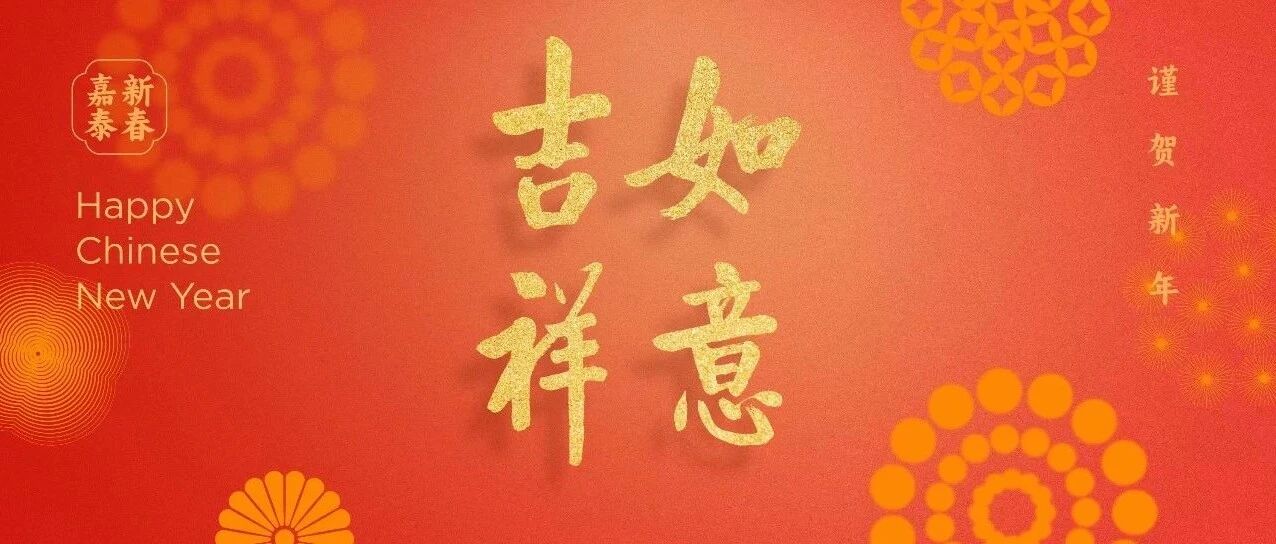 新春
嘉泰
Happy
Chinese
New Year
如意
吉祥
谨贺新年